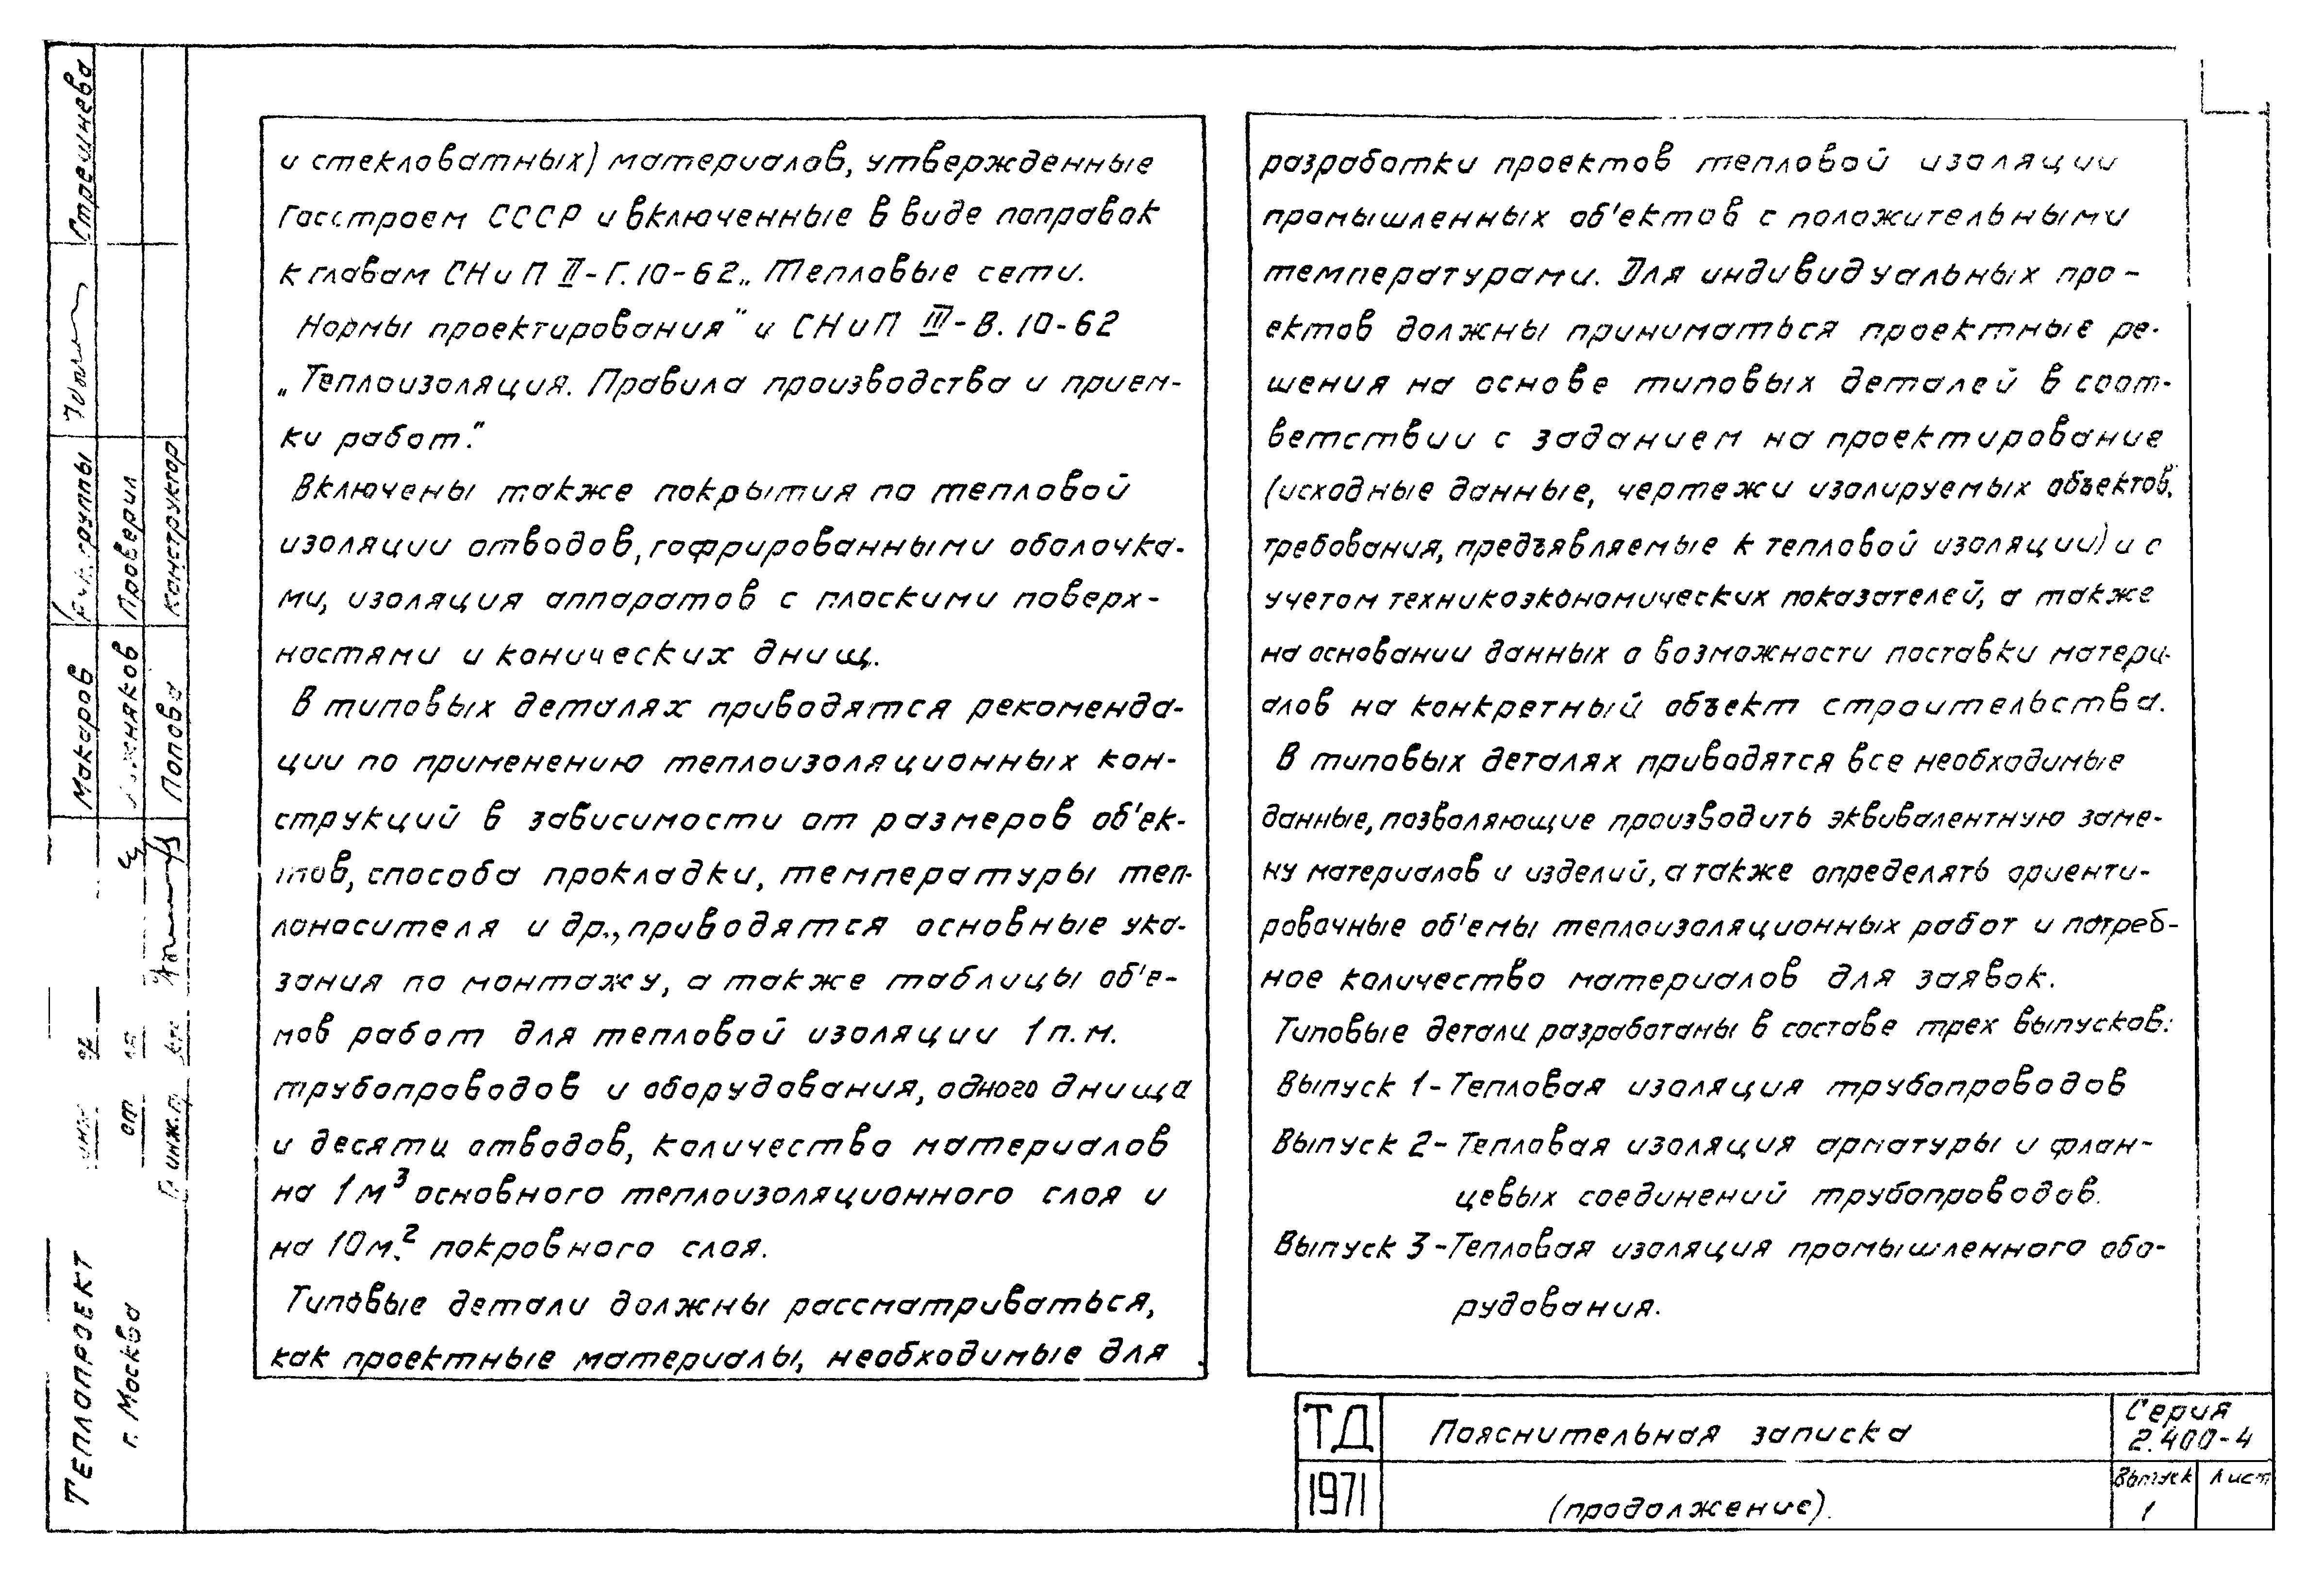 и стекловатных) материалов, утвержденные
Госстроем СССР и включенные в виде поправок
к главам СНиП II-Г.10-62 „Тепловые сети.
Нормы проектирования" и СНиП III-В.10-62
„Теплоизоляция. Правила производства и прием-
ки работ."
Включены также покрытия по тепловой
изоляции отводов, гофрированными оболочка-
ми, изоляция аппаратов с плоскими поверх-
ностями и конических днищ.
В типовых деталях приводятся рекоменда-
ции по применению теплоизоляционных кон-
струкций в зависимости от размеров об'ек-
тов, способа прокладки, температуры теп-
лоносителя и др., приводятся основные ука-
зания по монтажу, а также таблицы об'е-
мов работ для тепловой изоляции 1 п.м.
трубопроводов и оборудования, одного днища
и десяти отводов, количество материалов
на 1 м³ основного теплоизоляционного слоя и
на 10 м.² покровного слоя.
Типовые детали должны рассматриваться,
как проектные материалы, необходимые для
разработки проектов тепловой изоляции
промышленных об'ектов с положительными
температурами. Для индивидуальных про-
ектов должны приниматься проектные ре-
шения на основе типовых деталей в соот-
ветствии с заданием на проектирование
(исходные данные, чертежи изолируемых объектов,
требования, предъявляемые к тепловой изоляции) и с
учетом техникоэкономических показателей, а также
на основании данных о возможности поставки матери-
алов на конкретный объект строительства.
В типовых деталях приводятся все необходимые
данные, позволяющие производить эквивалентную заме-
ну материалов и изделий, а также определять ориенти-
ровочные об'емы теплоизоляционных работ и потреб-
ное количество материалов для заявок.
Типовые детали разработаны в составе трех выпусков:
Выпуск 1 - Тепловая изоляция трубопроводов
Выпуск 2 - Тепловая изоляция арматуры и флан-
цевых соединений трубопроводов.
Выпуск 3 - Тепловая изоляция промышленного обо-
рудования.
ТД
1971
Пояснительная записка
(продолжение).
Серия
2.400-4
Выпуск Лист
1
ТЕПЛОПРОЕКТ
г. Москва
Макаров группы Стрешнева
Проверил
Попова Конструктор